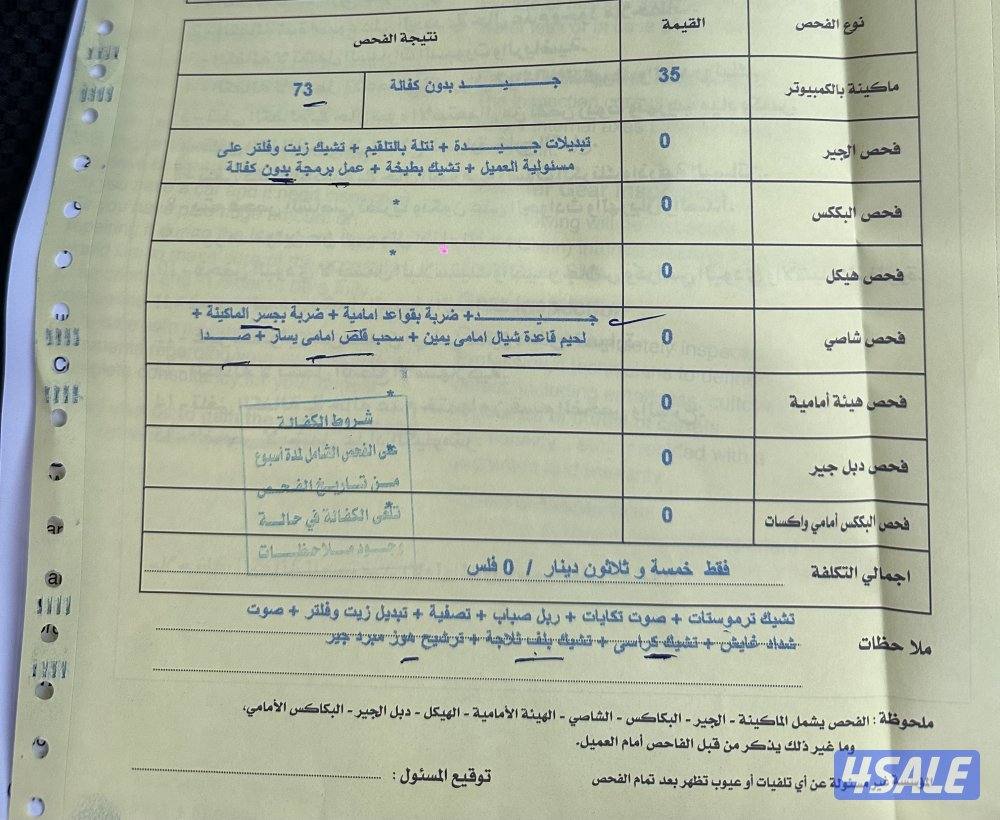 نوع الفحص القيمة نتيجة الفحص
ماكينة بالكمبيوتر 35 جـــيـــــد بدون كفالة 73
فحص الجير 0 تبديلات جـــيـــدة + نتلة بالتلقيم + تشيك زيت وفلتر على
مسئولية العميل + تشيك بطيخة + عمل برمجة بدون كفالة
فحص البككس 0 *
فحص هيكل 0 *
فحص شاصي 0 جـــــيـــــــد+ ضربة بقواعد امامية + ضربة بجسر الماكينة +
لحيم قاعدة شيال امامى يمين + سحب قلص امامى يسار + صـــدا
فحص هيئة أمامية 0 *
فحص دبل جير 0 *
فحص البككس أمامي واكسات 0 *
شروط الكفالة
على الفحص الشامل لمدة أسبوع
مـن تـاريـخ الفـحـص
تلغى الكفالة في حالـة
وجـود مـلاحـظـات
اجمالي التكلفة فقط خمسة و ثلاثون دينار / 0 فلس
ملاحظات تشيك ترموستات + صوت تكايات + ربل صباب + تصفية + تبديل زيت وفلتر + صوت
شداد قايش + تشيك كراسى + تشيك بلف ثلاجة + ترشيح هوز مبرد جير
ملحوظة : الفحص يشمل الماكينة - الجير - البكاكس - الشاصي - الهيئة الأمامية - الهيكل - دبل الجير - البكاكس الأمامي،
وما غير ذلك يذكر من قبل الفاحص أمام العميل.
المؤسسة غير مسئولة عن أي تلفيات أو عيوب تظهر بعد تمام الفحص
توقيع المسئول :
4SALE